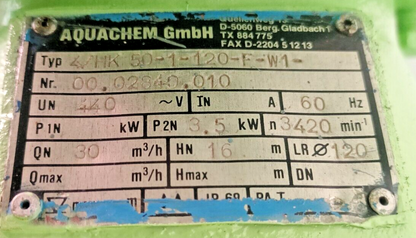 AQUACHEM GmbH
D-5060 Berg. Gladbach 1
TX 884 775
FAX D-2204 5 12 13
Typ 4/HK 50-1-120-F-W1-
Nr. 00.02840.010
UN 440 ~V IN A 60 Hz
P1N kW P2N 3.5 kW n 3420 min⁻¹
QN 30 m³/h HN 16 m LR Ø 120
Qmax m³/h Hmax m DN